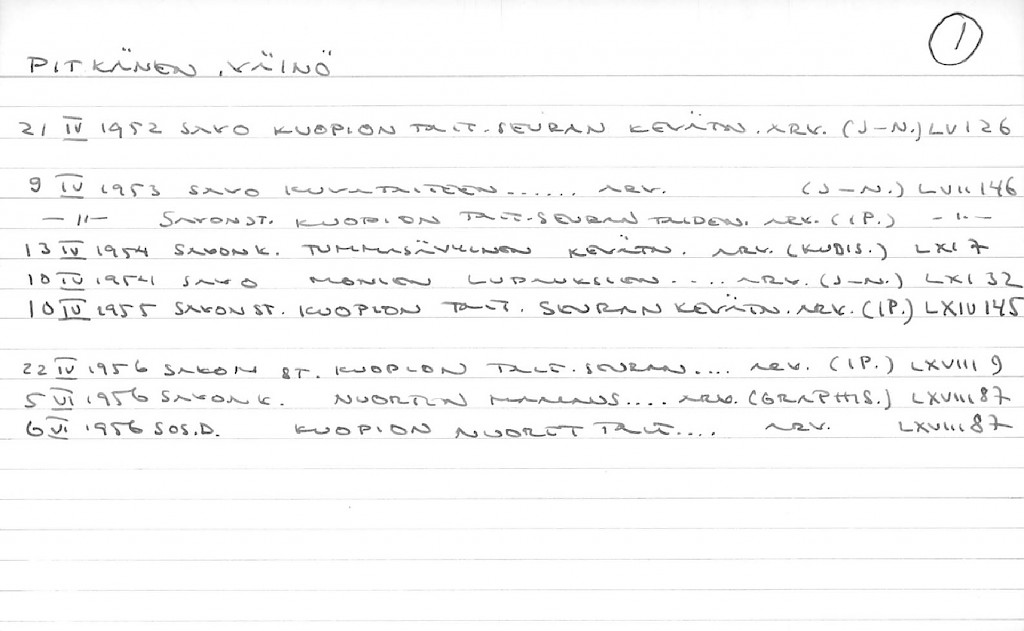 1
PITKÄNEN, VÄINÖ
21 IV 1952 SAVO KUOPION TAIT.SEURAN KEVÄTN. ARV. (J-N.) LV 126
9 IV 1953 SAVO KUVATAITEEN...... ARV. (J-N.) LVII 146
-"- SAVONST. KUOPION TAIT-SEURAN TAIDEN. ARV. (IP.) -"-
13 IV 1954 SAVONK. TUMMASÄVYINEN KEVÄTN. ARV. (KUDIS.) LXI 7
10 IV 1954 SAVO MONIEN LUPAUKSIEN.... ARV. (J-N.) LXI 32
10 IV 1955 SAVONST. KUOPION TAIT. SEURAN KEVÄTN. ARV. (IP.) LXIV 145
22 IV 1956 SAVON ST. KUOPION TAIT.SEURAN.... ARV. (IP.) LXVIII 9
5 VI 1956 SAVONK. NUORTEN .... ARV. (GRAPHIS.) LXVIII 87
6 VI 1956 SOS.D. KUOPION NUORET TAIT.... ARV. LXVIII 87